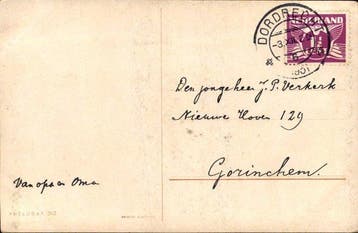 DORDRECHT
NEDERLAND
Den jongeheer J. P. Verkerk
Nieuwe Hoven 129
Gorinchem.
Van opa en Oma